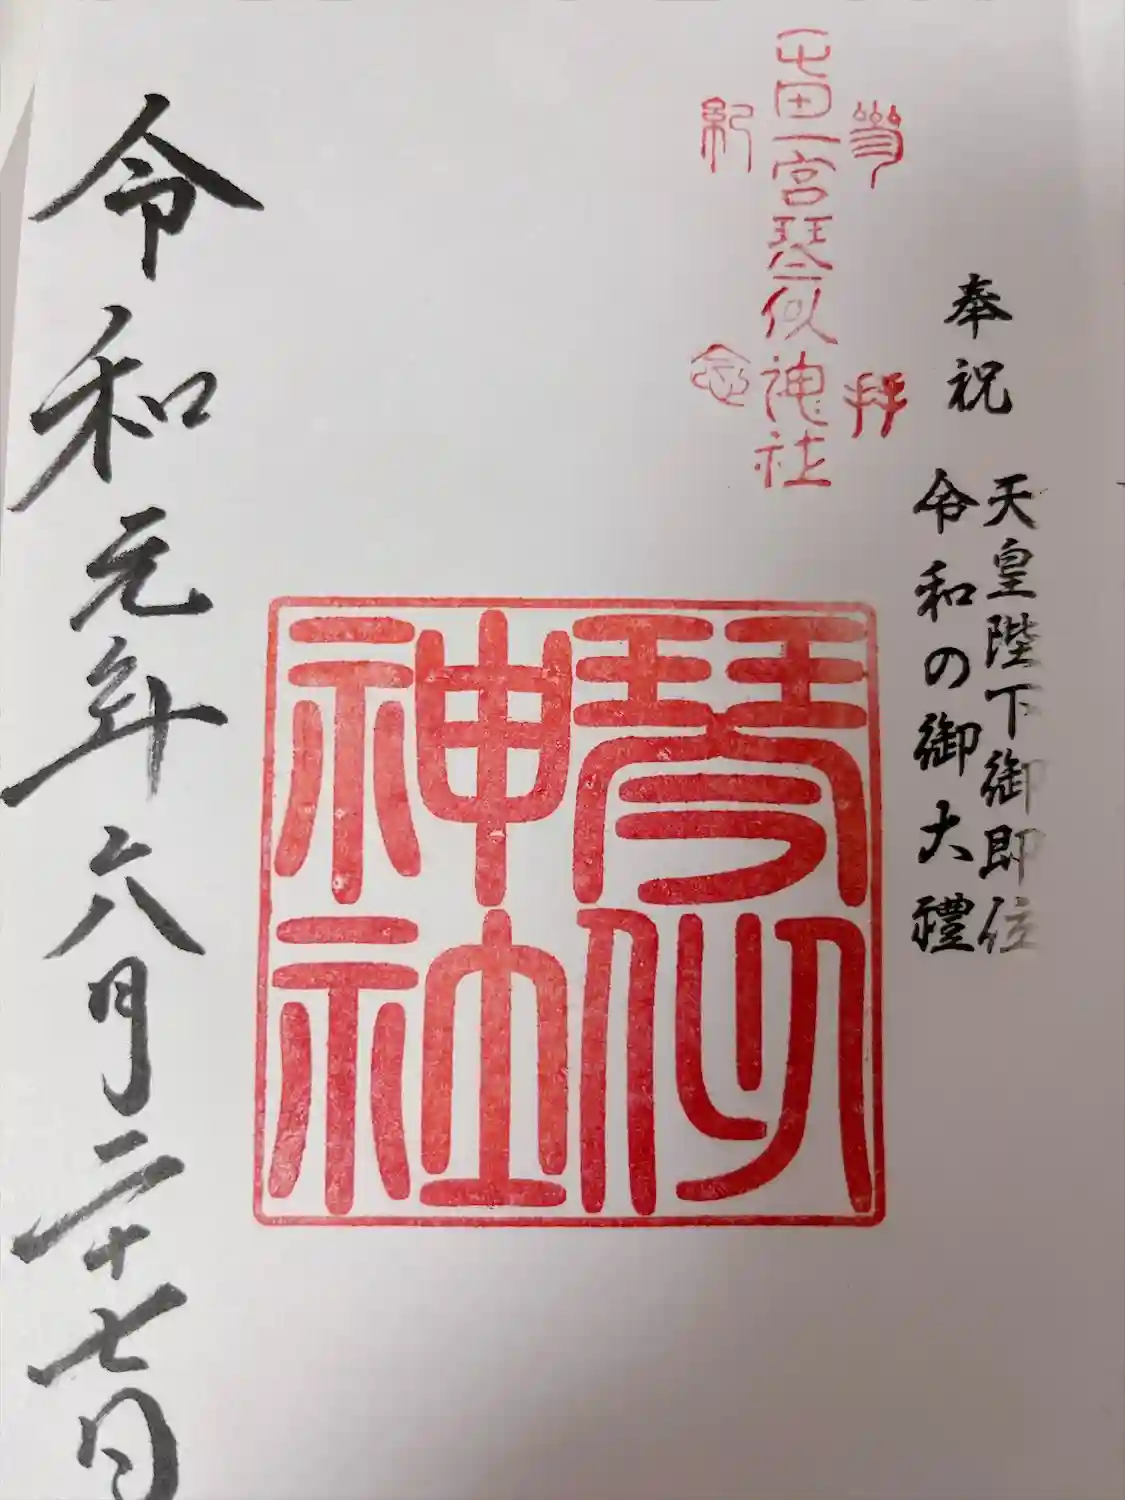 奉祝
天皇陛下御即位
令和の御大禮
参拝
屯田一宮琴似神社
紀念
琴似
神社
令和元年六月二十七日